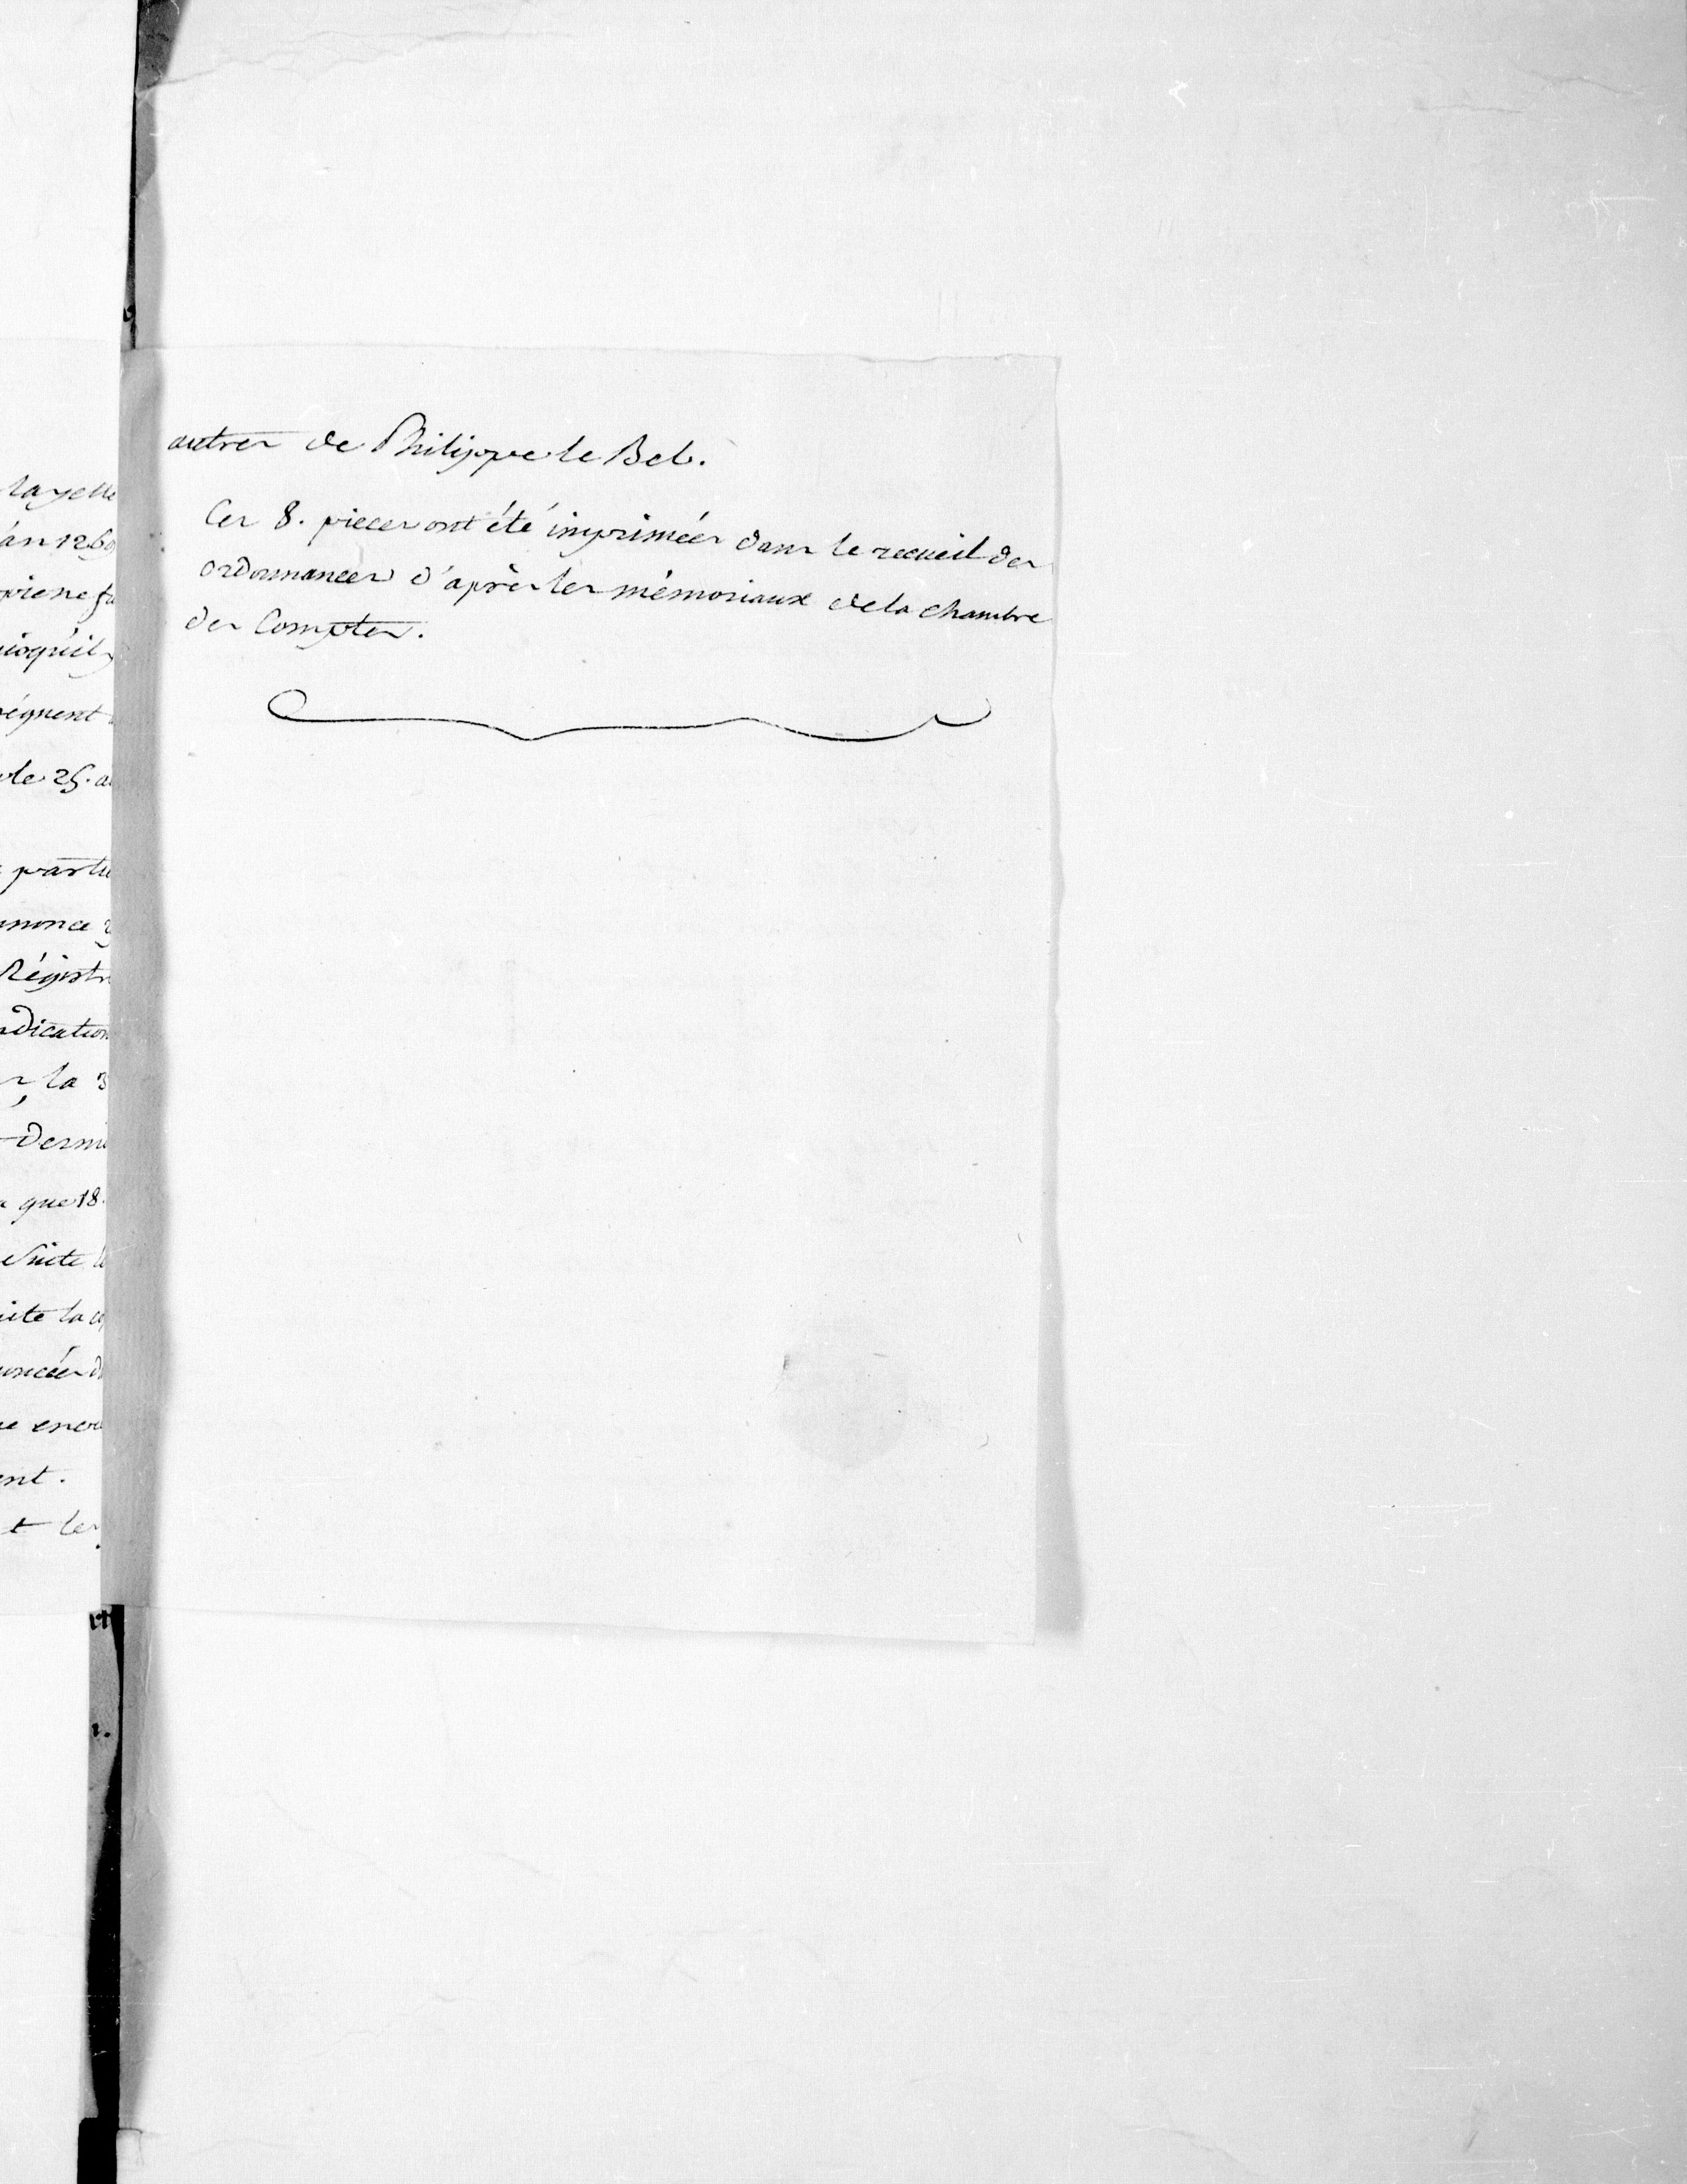 autres de Philippe le Bel.
Ces 8. pieces ont été imprimées dans le recueil des
ordonnances d'après les mémoriaux de la chambre
des Comptes.
layette
an 126
piene
ioqu'il
régnent
le 25.
partie
nnonce
Régistre
ndication
la 3
que 18.
suite
ite la
oncées
ent.
t les